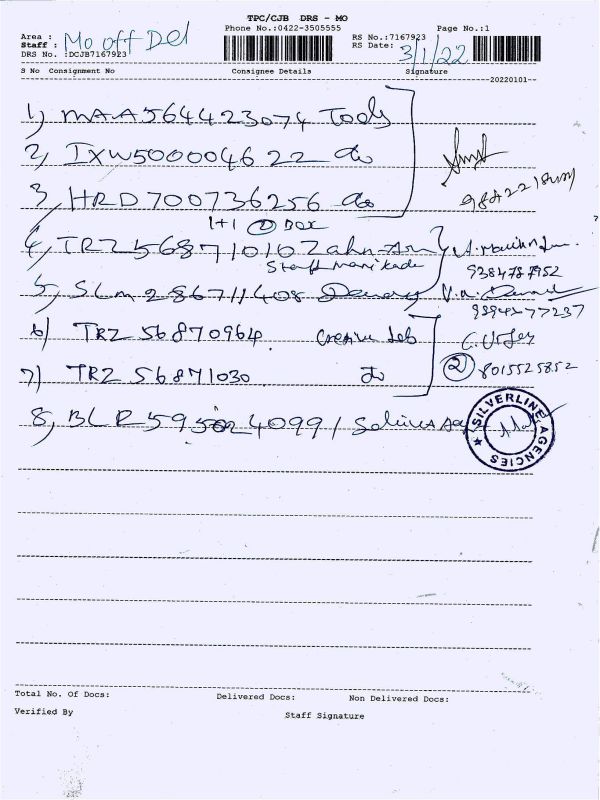 TPC/CJB DRS - MO
Phone No.:0422-3505555
Page No.:1
Area :
Staff : Mo off Del
DRS No. :DCJB7167923
RS No.:7167923
RS Date: 3/1/22
S No Consignment No Consignee Details Signature
20220101
1) MAA564423074 Tools
2) IXW500004622 do
3) HRD700736256 do
9842218
1+1 ② Box
4) TRZ56871010
Staff
9384787952
5) SLM286711408
9894277237
6) TRZ 56870964. Creative Lab
7) TRZ 56871030. do
② 8015525852
8) BLR59 4099
SILVERLINE AGENCIES
Total No. Of Docs: Delivered Docs: Non Delivered Docs:
Verified By Staff Signature